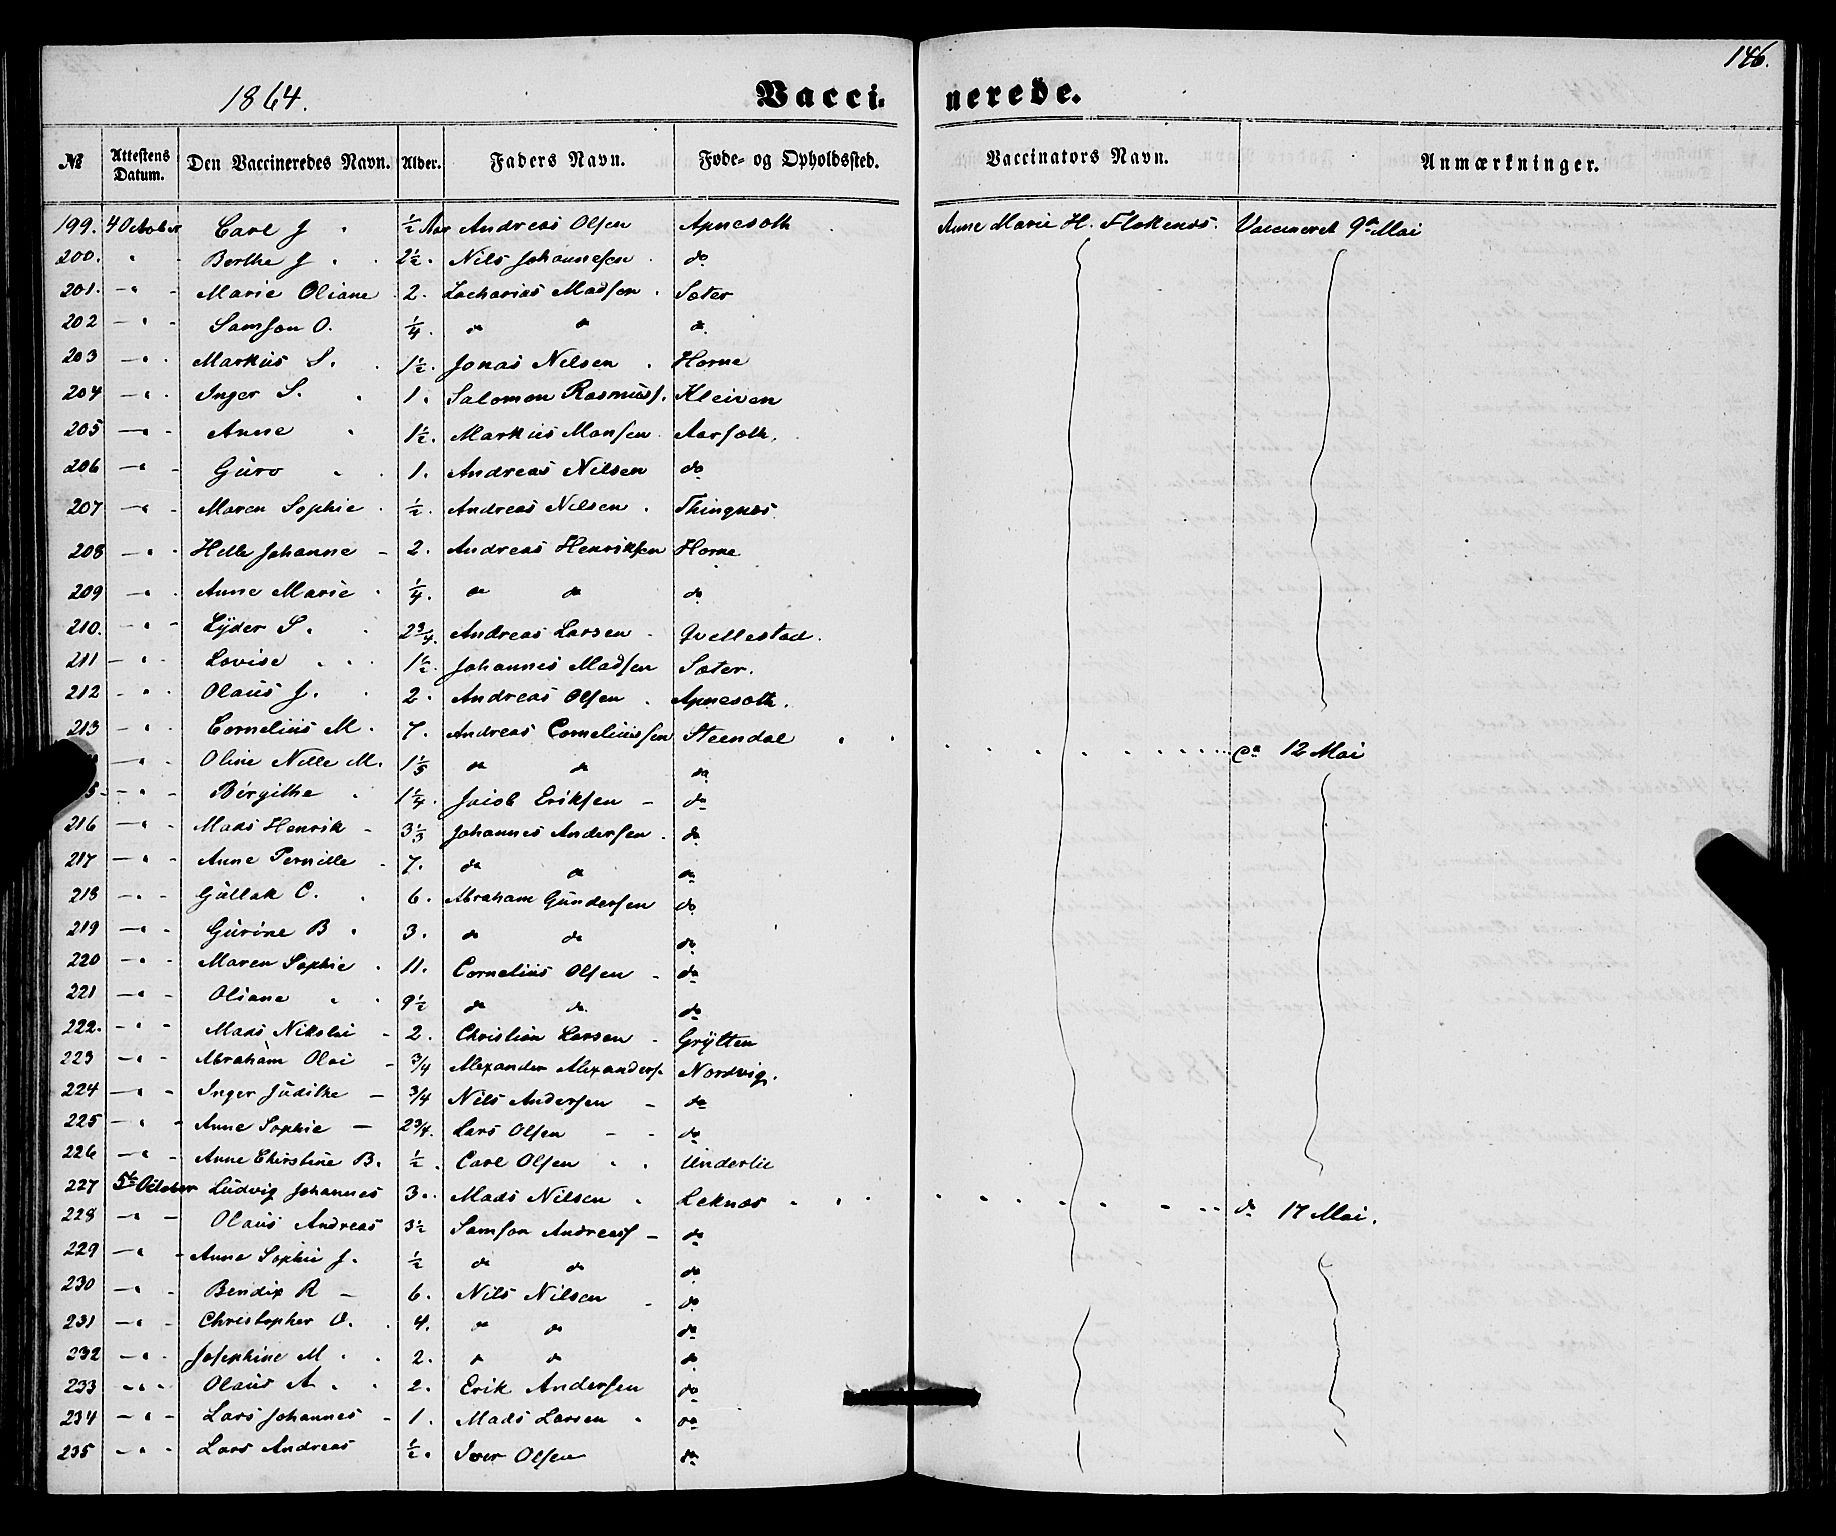 146.
1864.
Vacci-nerede.
№ Attestens Datum. Den Vaccineredes Navn. Alder. Faders Navn. Føde- og Opholdssted. Vaccinators Navn. Anmærkninger.
199. 4 October Carl J ½ Aar Andreas Olsen Apnesæth Anne Marie H. Flokenæs. Vaccineret 9de Mai
200. " Berthe J 2½. Nils Johannesen do
201. " Marie Oliane 2. Zacharias Madsen Sæter
202 " Samson O. ¼. do do do
203 " Markus S. 1½. Jonas Nilsen Horne
204 " Inger S. 1. Salomon Rasmuss. Kleiven
205 " Anne 1½. Markus Monsen Aarsæth.
206 " Guro 1. Andreas Nilsen do
207 " Maren Sophie ½. Andreas Nilsen Thingnæs
208 " Helle Johanne 2. Andreas Henriksen Horne
209 " Anne Marie ¼. do do do
210. " Lyder S. 2¾. Andreas Larsen Qvellestad.
211 " Lovise 1½. Johannes Madsen Sæter.
212 " Olaus J. 2. Andreas Olsen Apnesæth.
213 " Cornelius M. 7. Andreas Corneliussen Steendal do 12 Mai
" Oline Nille M. 1⅓ do do do
5 " Birgithe 1¼. Jacob Eriksen do
216 " Mads Henrik 3⅓ Johannes Andersen do
217 " Anne Pernille 7. do do do
218 " Gullak C. 6. Abraham Gundersen do
219 " Gurine B 3. do do do
220 " Maren Sophie 11. Cornelius Olsen do
221 " Oliane 9½ do do do
222. " Mads Nikolai 2. Christian Larsen Grytten
223 " Abraham Olai 3/4 Alexander Alexanders. Nordvig.
224 " Inger Judithe 3/4 Nils Andersen do
225 " Anne Sophie 2 3/4. Lars Olsen do
226 " Anne Christine B. ½. Carl Olsen Underlie
227 5te October Ludvig Johannes 3. Mads Nilsen Leknæs do 17 Mai.
228 " Olaus Andreas 3½ Samson Andreass do
229 " Anne Sophie J. ½ do do do
230 " Bendix R 6. Nils Nilsen do
231 " Christopher O. 4. do do do
232 " Josephine M 2. do do do
233 " Olaus A 2. Erik Andersen do
234 " Lars Johannes 1. Mads Larsen do
235 " Lars Andreas ½. Iver Olsen do